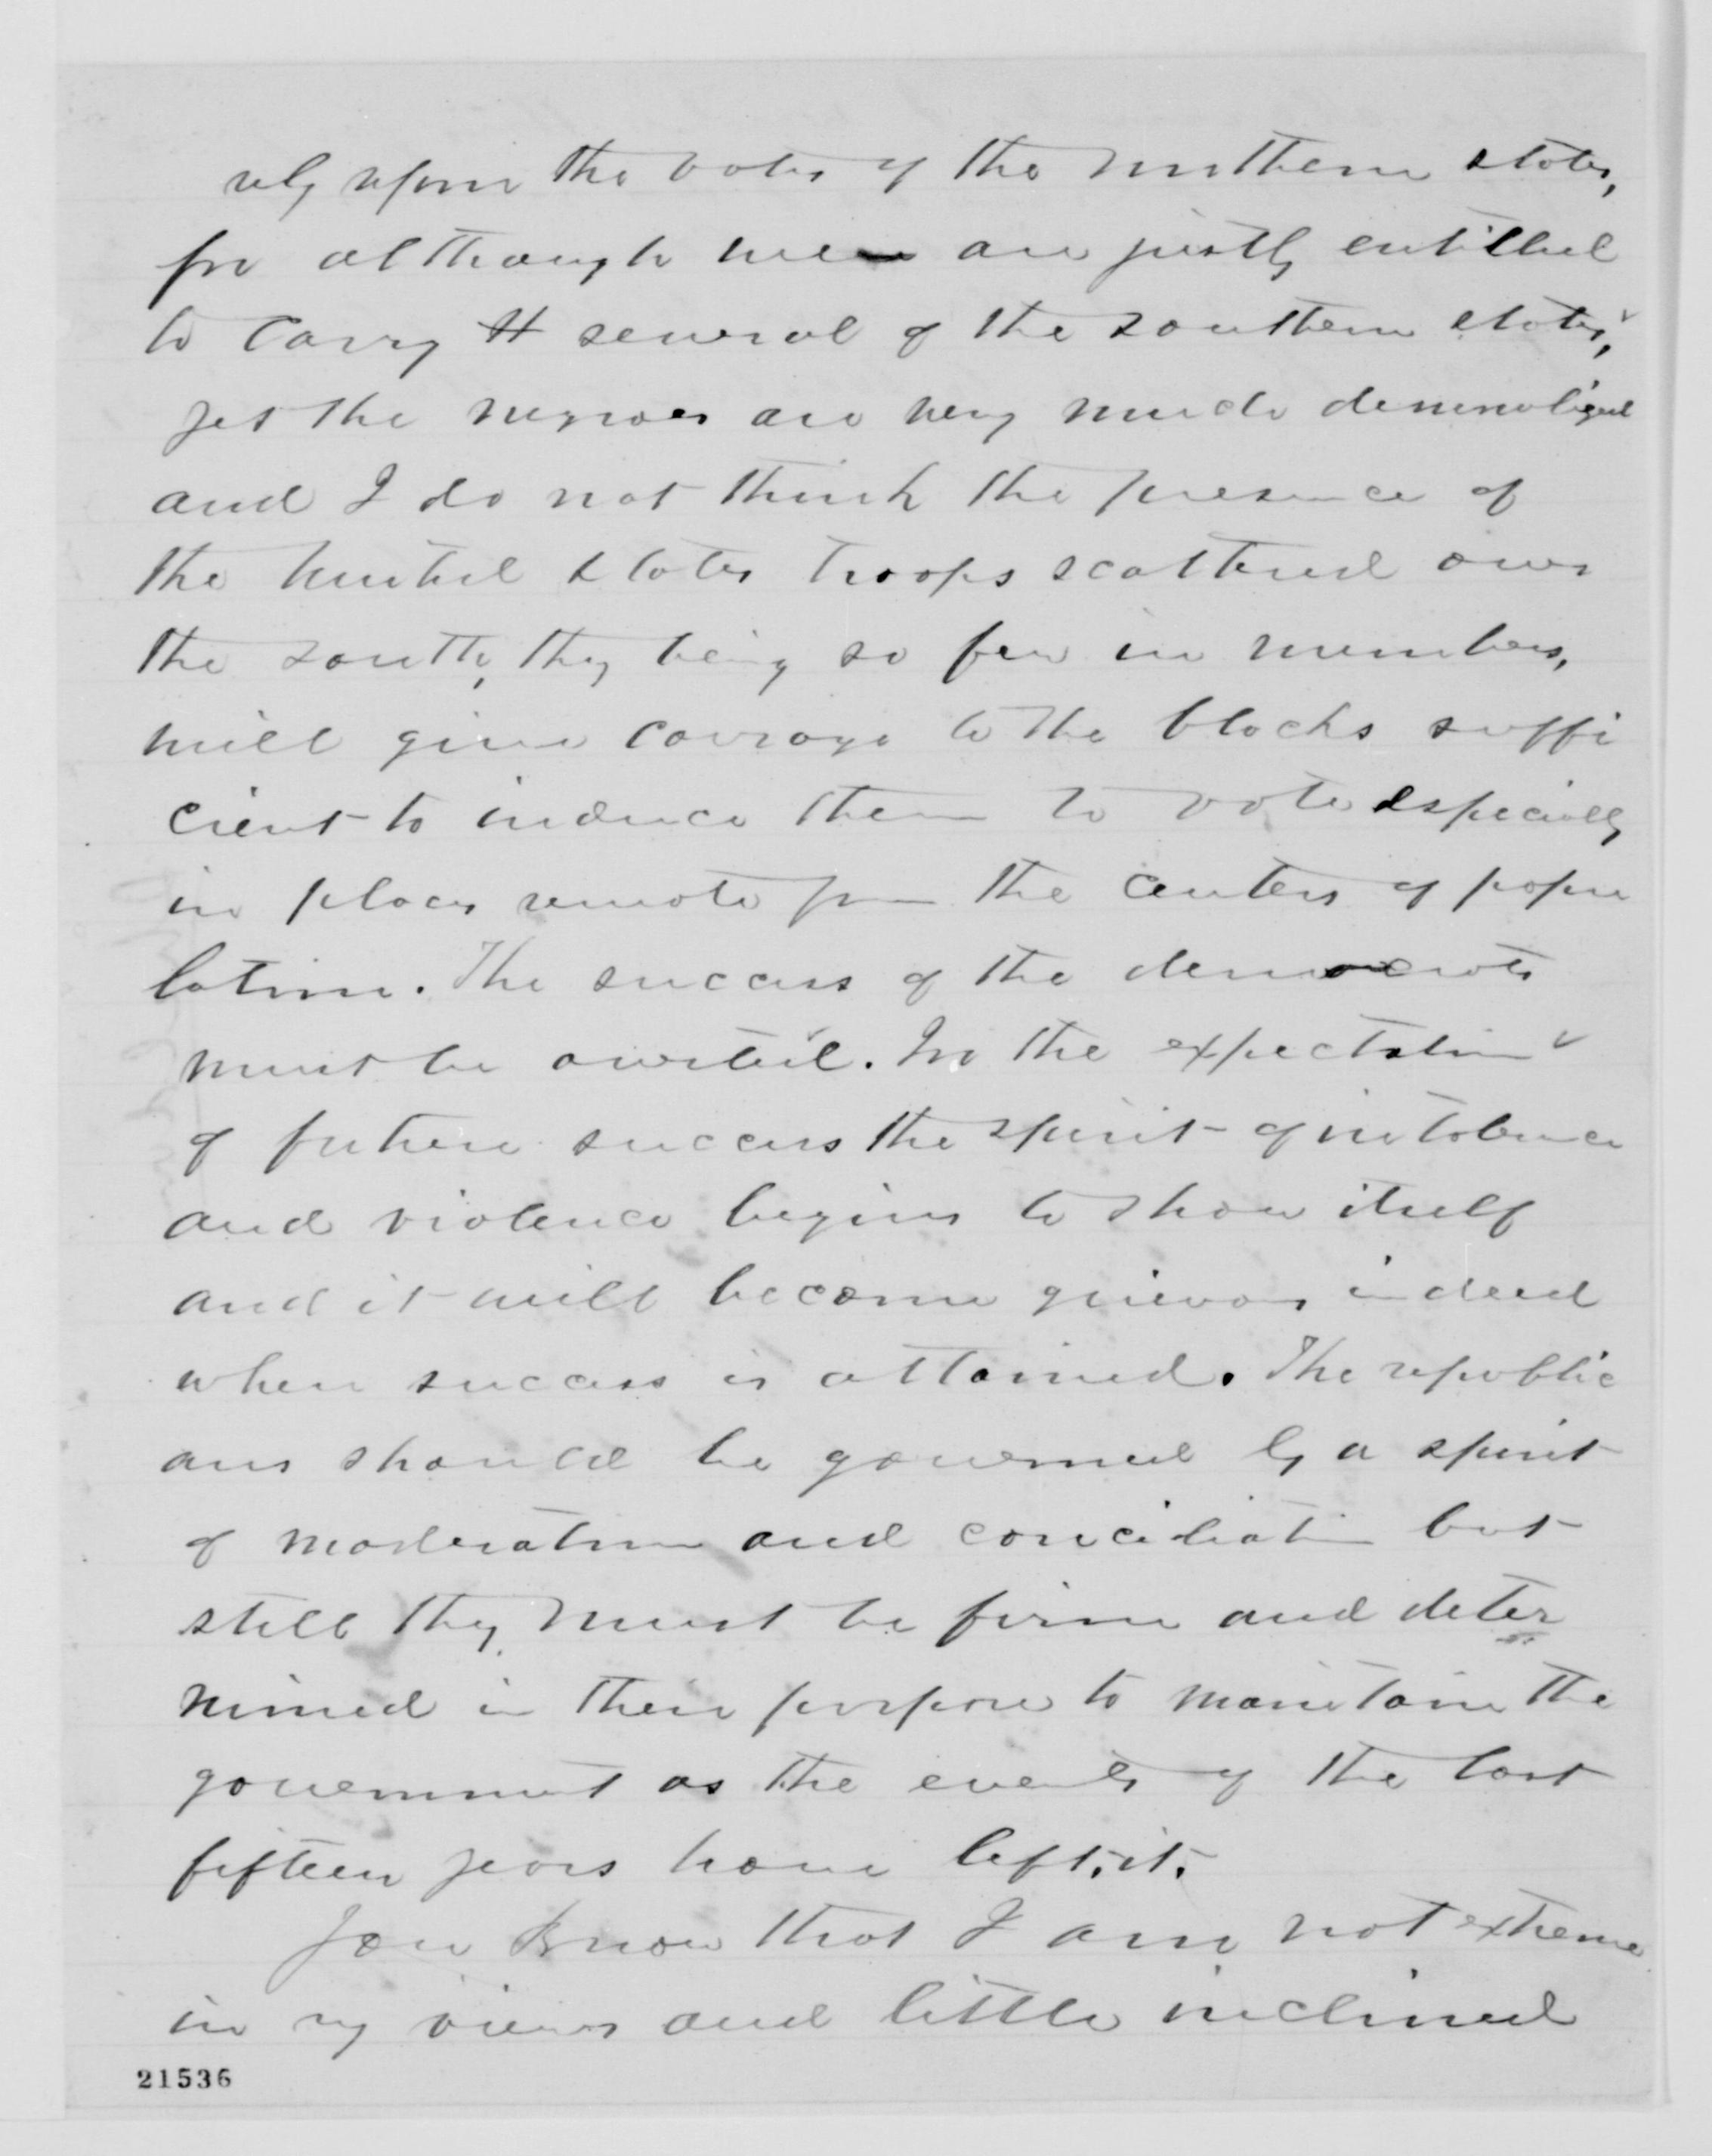 rely upon the votes of the northern states,
for although we are justly entitled
to carry several of the southern states,
yet the negroes are very much demoralized
and I do not think the presence of
the United States troops scattered over
the south, they being so few in numbers,
will give courage to the blacks suffi
cient to induce them to vote especially
in places remote from the centers of popu
lation. The success of the democrats
must be averted. In the expectation
of future success the spirit of intolerance
and violence begins to show itself
and it will become grievous indeed
when success is attained. The republic
ans should be governed by a spirit
of moderation and conciliation but
still they must be firm and deter
mined in their purpose to maintain the
government as the events of the last
fifteen years have left it.
You know that I am not extreme
in my views and little inclined
21536